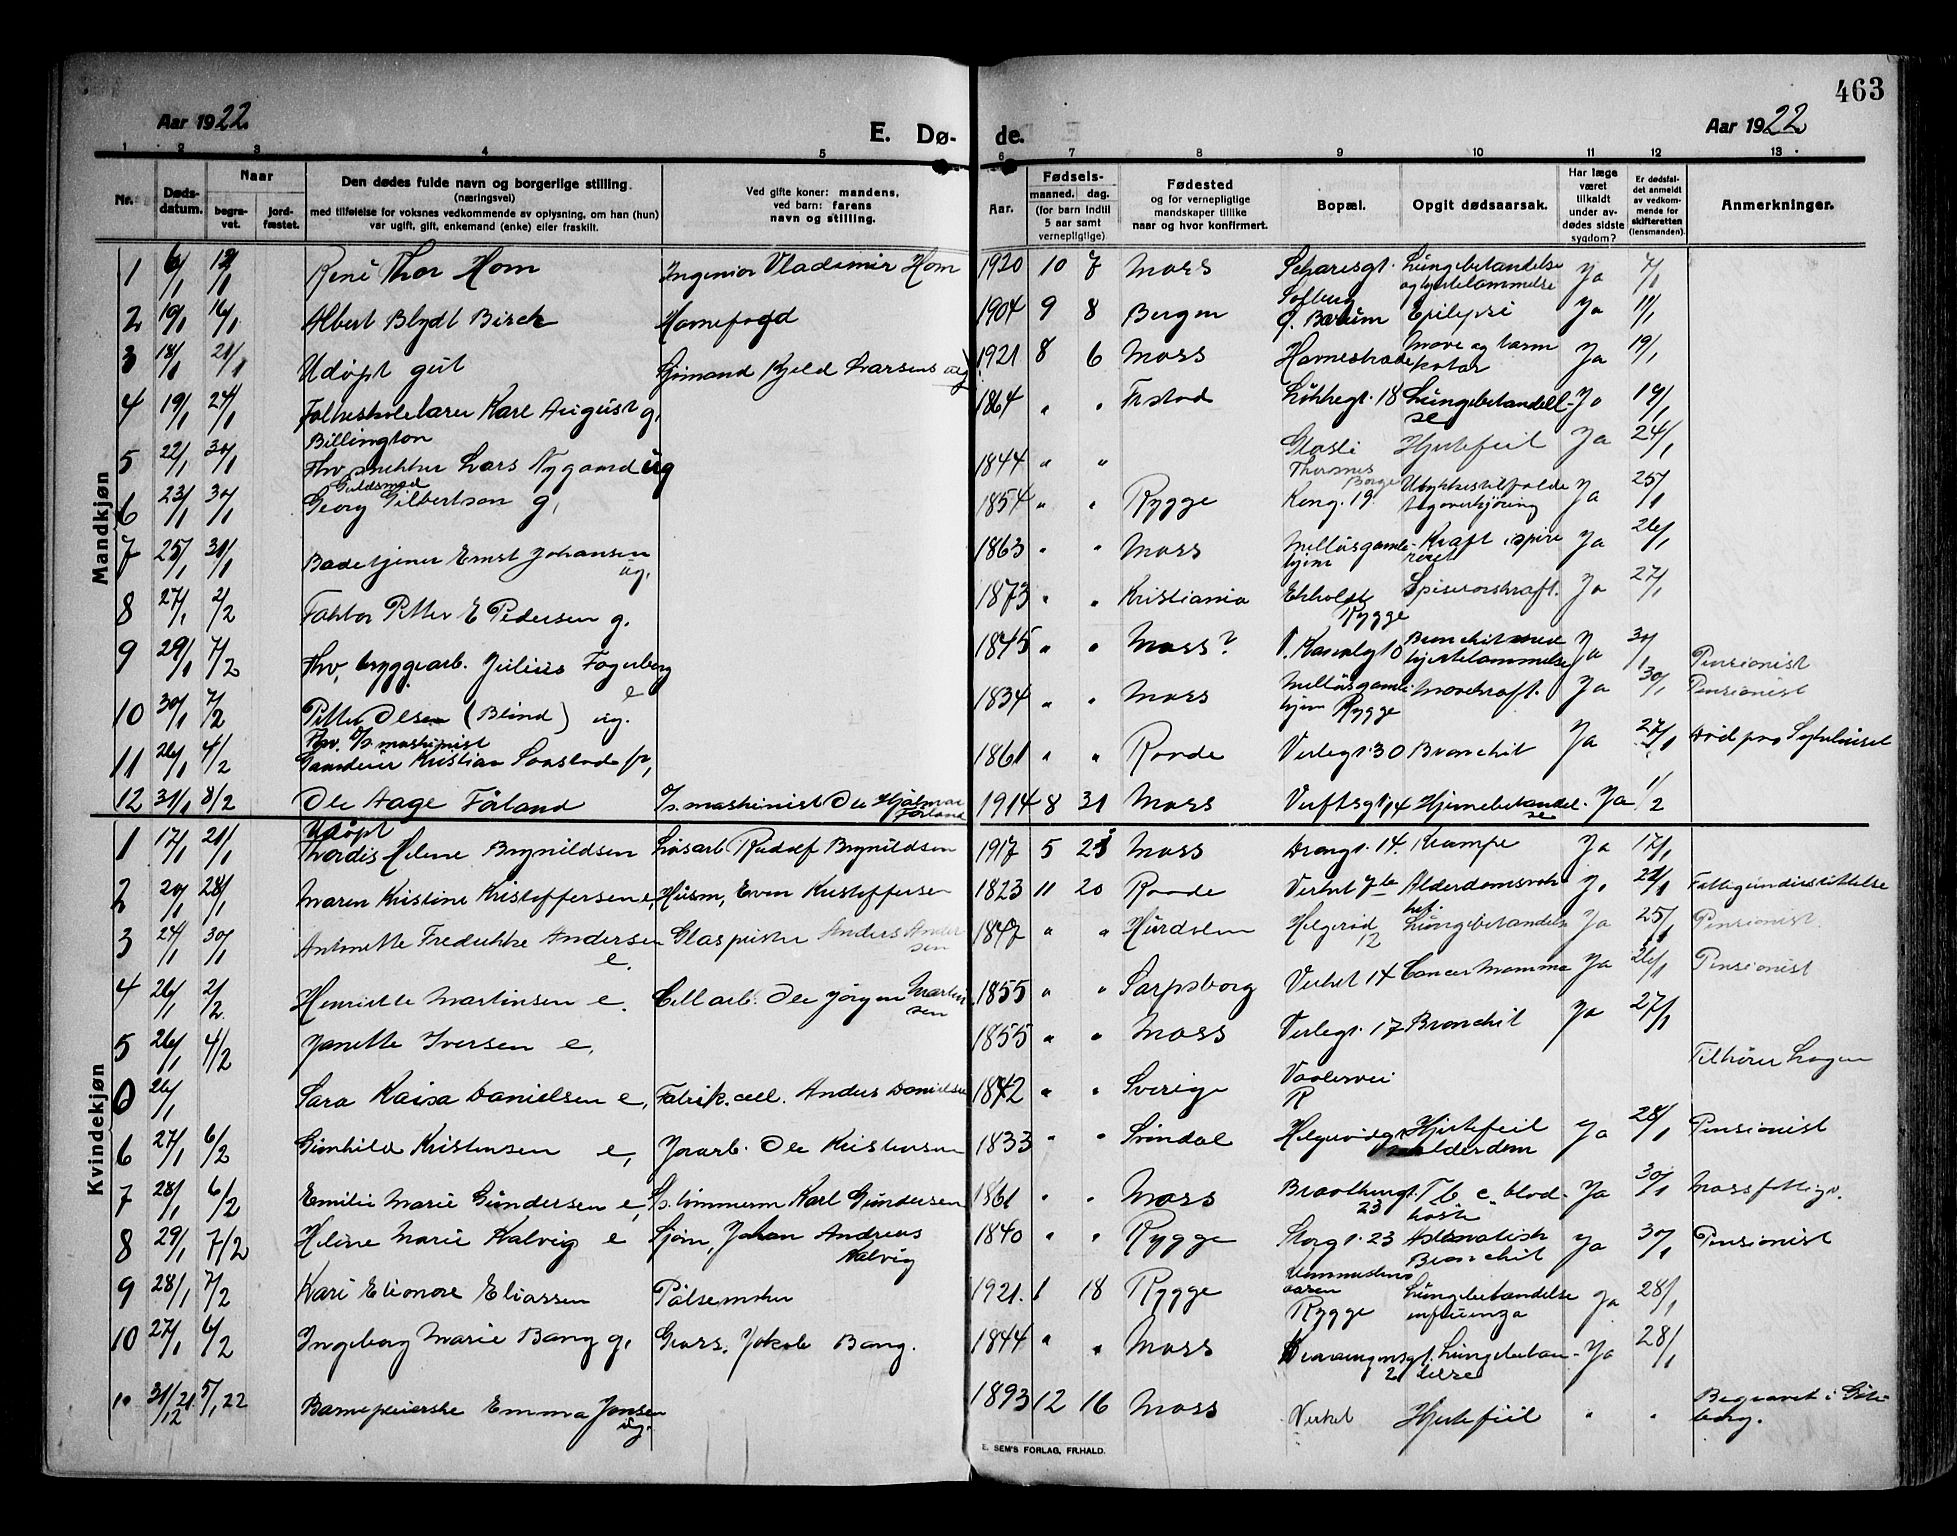 463
Aar 1922
E. Dø-
de.
Aar 1922
1 2 3 4 5 6 7 8 9 10 11 12 13
Nr.
Døds-
datum.
Naar
begra-
vet.
jord-
fæstet.
Den dødes fulde navn og borgerlige stilling.
(næringsvei)
med tilføielse for voksnes vedkommende av oplysning, om han (hun)
var ugift, gift, enkemand (enke) eller fraskilt.
Ved gifte koner: mandens,
ved barn: farens
navn og stilling.
Aar.
Fødsels-
maaned. dag.
(for barn indtil
5 aar samt
vernepligtige)
Fødested
og for vernepligtige
mandskaper tillike
naar og hvor konfirmert.
Bopæl.
Opgit dødsaarsak.
Har læge
været
tilkaldt
under av-
dødes sidste
sygdom?
Er dødsfal-
det anmeldt
av vedkom-
mende for
skifteretten
(lensmanden).
Anmerkninger.
Mandkjøn
1 6/1 René Thor Hom Ingeniør Vladimir Hom 1920 10 7 Moss Lungebetændelse Ja 7/1
og hjertelammelse
2 Albert Blydt Birch Havnefogd 1904 9 8 Bergen Solberg Epilepsi Ja 11/1
Ø. Bærum
3 18/1 21/1 Udøpt gut Sjømand Kjeld Larsens 1921 8 6 Moss Mave og tarm Ja 19/1
katar
4 19/1 24/1 Folkeskolelærer Karl August g, 1864 " " Frstad Løkkegt. 18 Lungebetændel- Ja 19/1
Billington se
5 22/1 30/1 Fhv. snekker Lars Nygaard ug 1844 " " Hjertefeil Ja 24/1
6 23/1 30/1 Guldsmed
Georg Gilbertson g, 1854 " " Rygge Kong. 19 Ulykkestilfælde Ja 25/1
togoverkjøring
7 25/1 31/1 Badetjener Ernst Johansen 1863 " " Moss Melløsgamle- Kræft i spise Ja 26/1
ug. hjem røret
8 27/1 2/2 Faktor Petter E Pedersen g. 1873 " " Kristiania Ekholdt Spiserørskræft. Ja 27/1
Rygge
9 29/1 7/2 Fhv, bryggearb. Julius Fagerberg 1845 " " Moss? Bronchit med Ja 30/1 Pensionist
e hjertelammelse
10 30/1 7/2 Petter Olsen (Blind) ug. 1834 " " Moss Melløsgamle- Mavekræft. Ja 30/1 Pensionist
hjem Rygge
11 26/1 4/2 Fhv. maskinist
Kristian 1861 " " Raade Verlegt. 30 Bronchit Ja 27/1 Død paa Sykehuset
12 31/1 8/2 Ole Aage Førland maskinist Ole Hjalmar 1914 8 31 Moss Verftsgt. 14 Hjernebetændel- Ja 1/2
Førland se
Kvindekjøn
1 17/1 21/1 Udøpt
Thordis Helene Brynildsen Løsarb. Rudolf Brynildsen 1917 5 23 Moss Drongt. 14. Krampe Ja 17/1
2 20/1 28/1 Maren Kristine Kristoffersen e, Husm, Even Kristoffersen 1823 11 20 Raade Verket Alderdomsvak- Fattigunderstøttelse
het.
3 24/1 30/1 Antonette Fredrikke Andersen Glaspuster Anders Ander- 1847 " " Hurdalen Helgerød Lungebetændelse Ja 25/1 Pensionist
e. sen 12
4 26/1 2/2 Henriette Martinsen e. Cell arb. Ole Jørgen Martin 1855 " " Sarpsborg Verket 14 Cancer Mamma Ja 26/1 Pensionist
sen
5 26/1 4/2 Janette Iversen e, 1855 " " Moss Verlegt. 17 Bronchit Ja 27/1
0 26/1 Sara Kaisa Danielsen e, Fabrik. cell. Anders Danielsen 1842 " " Sverige Vaalervei Tilhører
R
6 27/1 6/2 Gunhild Kristensen e, Jrarb. Ole Kristensen 1833 " " Svindal Helgerødg. Hjertefeil Ja 28/1 Pensionist
alderdom
7 28/1 6/2 Emilie Marie Gundersen e, Karl Gundersen 1861 " " Moss Tb. c. blod- Ja 30/1 Moss fattigv.
23 hoste
8 29/1 7/2 Heline Marie Kalvig e Sjøm, Johan Andreas 1840 " " Rygge Storgt. 23 Astmatisk Ja 30/1 Pensionist
Kalvig Bronchit
9 28/1 7/2 Kari Elionore Eliassen Pølsemaker 1921. 1 18 Rygge Lungebetændelse Ja 28/1
Rygge influenza
10 27/1 6/2 Ingeborg Marie Bang g, Jakob Bang. 1844 " " Moss Lungebetæn- Ja 28/1
2 delse
31/12 21. 5/1 22 Barnepleierske Emma Jensen 1893 12 16 Moss Verket Hjertefeil " " Begravet i Gøte-
ug. borg.
E. SEM'S FORLAG, FR.HALD.